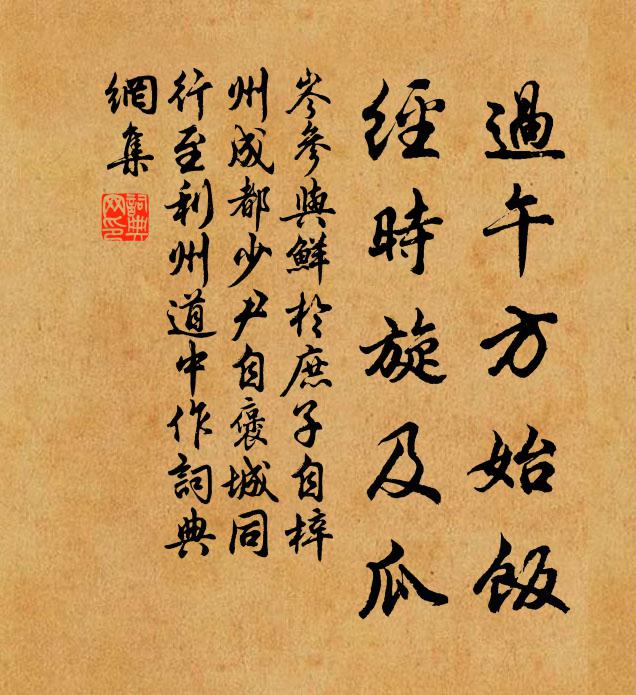 過午方始飯
經時旋及瓜
岑參與鮮於庶子自梓
州成都少尹自褒城同
行至利州道中作詞典
網集
詞典
网印